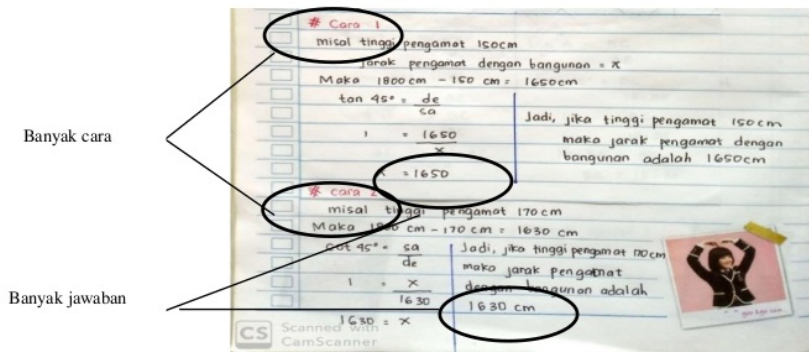 # Cara 1
misal tinggi pengamat 150cm
jarak pengamat dengan bangunan = x
Maka 1800 cm - 150 cm = 1650cm
tan 45° = de
sa
1 = 1650
x
x = 1650
Jadi, jika tinggi pengamat 150cm
maka jarak pengamat dengan
bangunan adalah 1650cm
Banyak cara
# cara 2
misal tinggi pengamat 170 cm
Maka 1800 cm - 170 cm = 1630 cm
cot 45° = sa
de
1 = x
1630
1630 = x
Jadi, jika tinggi pengamat 170 cm
maka jarak pengamat
dengan bangunan adalah
1630 cm
Banyak jawaban
CS Scanned with
CamScanner